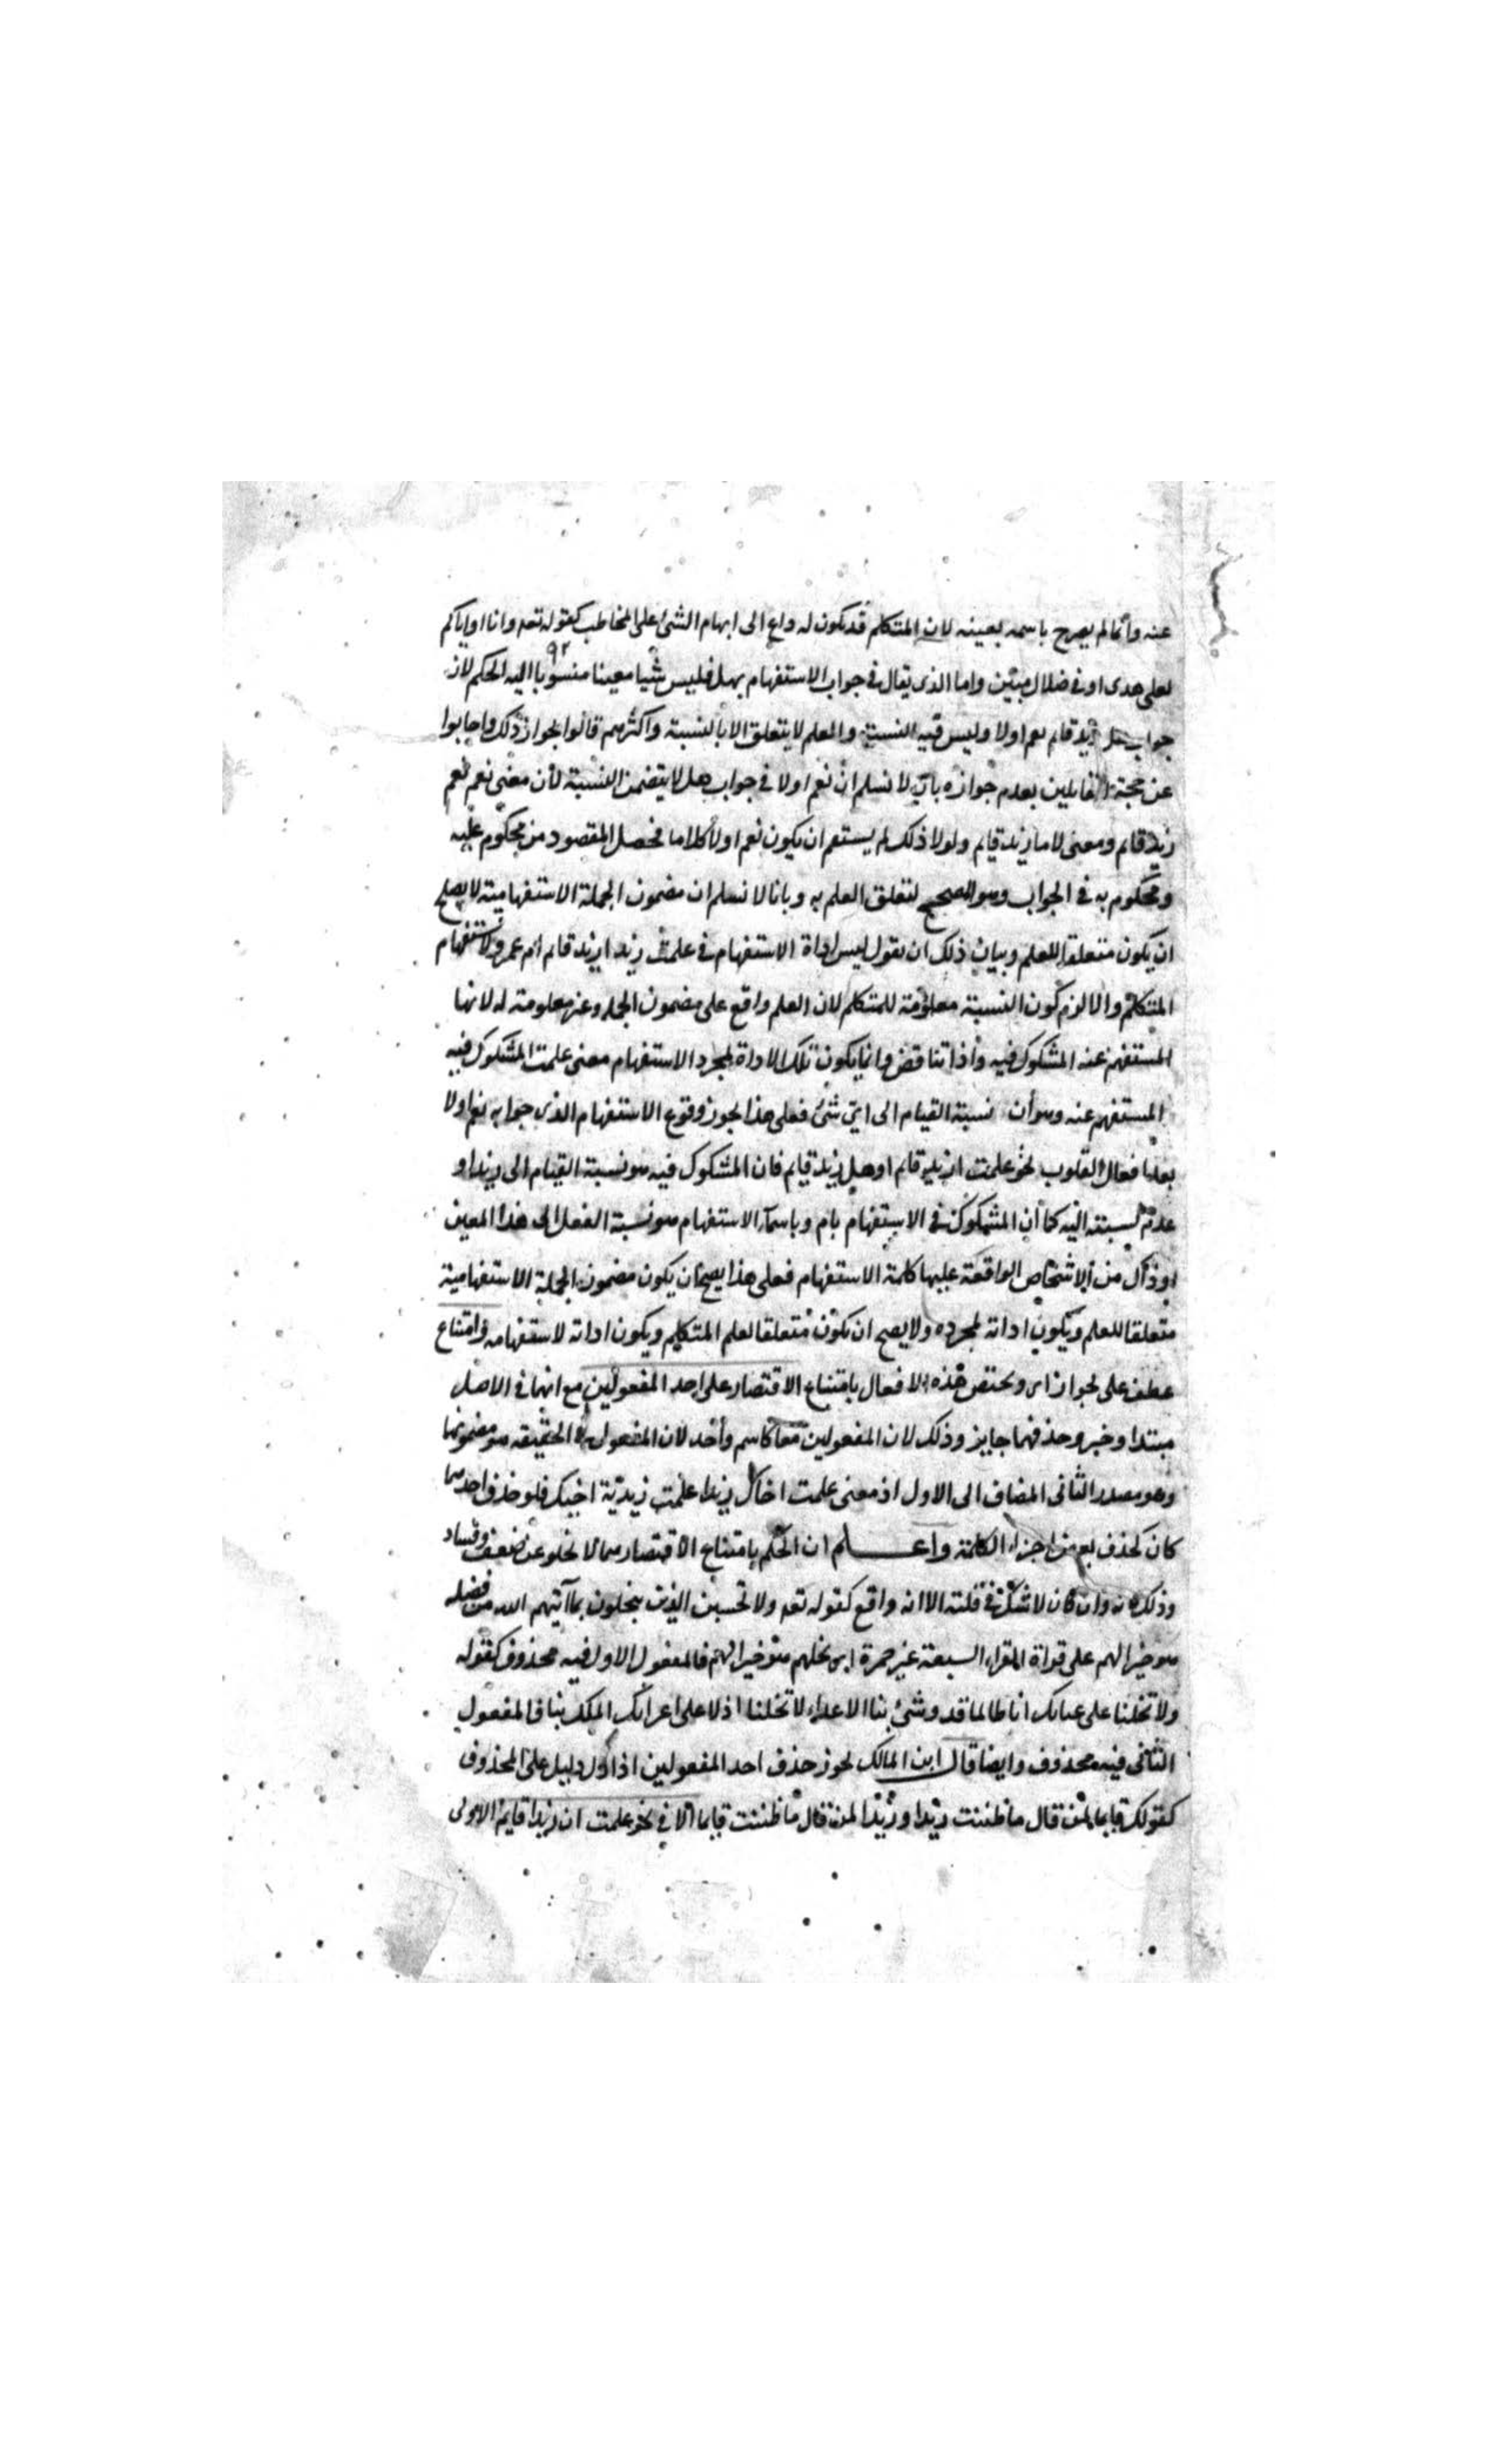 عنه وانما لم يصرح باسمه بعينه لان المتكلم قد يكون له داع الى ابهام الشئ على المخاطب كقوله تعه وانا او اياكم
٩٢
لعلى هدى او فى ضلال مبين واما الذى يقال فى جواب الاستفهام بهل فليس شيا معينا منسوبا اليه الحكم لان
جواب هل زيد قايم نعم او لا وليس فيه النسبة والعلم لا يتعلق الا بالنسبة واكثرهم قالوا بجواز ذلك واجابوا
عن حجة القايلين بعدم جوازه بانا لا نسلم ان نعم او لا فى جواب هل لا يتضمن النسبة لأن معنى نعم نعم
زيد قايم ومعنى لا ما زيد قايم ولولا ذلك لم يستقم ان يكون نعم او لا كلاما فحصل المقصود من محكوم عليه
ومحكوم به فى الجواب وهو المصحح لتعلق العلم به وبانا لا نسلم ان مضمون الجملة الاستفهامية لا يصلح
ان يكون متعلقا للعلم وبيان ذلك ان نقول ليس اداة الاستفهام فى علمت زيد ازيد قايم ام عمرو لاستفهام
المتكلم والا لزم كون النسبة معلومة للمتكلم لان العلم واقع على مضمون الجملة وغير معلومة له لانها
المستفهم عنه المشكوك فيه واذا تناقض وانما يكون تلك الاداة لمجرد الاستفهام معنى علمت المشكوك فيه
المستفهم عنه وهو أن نسبة القيام الى اى شئ فعلى هذا يجوز وقوع الاستفهام الذى جوابه نعم او لا
بعد افعال القلوب نحو علمت ازيد قايم او هل زيد قايم فان المشكوك فيه هو نسبة القيام الى زيد او
عدم نسبته اليه كما أن المشكوك فى الاستفهام بام وباسماء الاستفهام هو نسبة الفعل الى هذا المعين
او ذاك من الاشخاص الواقعة عليها كلمة الاستفهام فعلى هذا يصح ان يكون مضمون الجملة الاستفهامية
متعلقا للعلم ويكون اداته لمجرده ولا يصح ان يكون متعلقا لعلم المتكلم ويكون اداته لاستفهامه وامتناع
عطف على بجواز اى وتختص هذه الافعال بامتناع الاقتصار على احد المفعولين مع انهما فى الاصل
مبتدا وخبر وحذفهما جايز وذلك لان المفعولين معا كاسم واحد لان المفعول فى الحقيقة هو مضمونهما
وهو مصدر الثانى المضاف الى الاول اذ معنى علمت اخاك زيدا علمت زيدية اخيك فلو حذف احدهما
كان كحذف بعض اجزاء الكلمة واعلم ان الحكم بامتناع الاقتصار مما لا يخلو عن ضعف وفساد
وذلك لانه وان كان لا شك فى قلته الا انه واقع كقوله تعه ولا تحسبن الذين يبخلون بما آتيهم الله من فضله
هو خيرا لهم على قراة القراء السبعة غير حمزة اى بخلهم هو خيرا لهم فالمفعول الاول فيه محذوف كقوله
ولا تخلنا على غراتك انا طالما قد وشئ بنا الاعداء لا تخلنا اذلا على اغرائك الملك بنا فالمفعول
الثانى فيه محذوف وايضا قال ابن المالك يجوز حذف احد المفعولين اذا دل دليل على المحذوف
كقولك قايما لمن قال ما ظننت زيدا وزيدا لمن قال ما ظننت قايما الا فى نحو علمت ان زيدا قايم الاولى